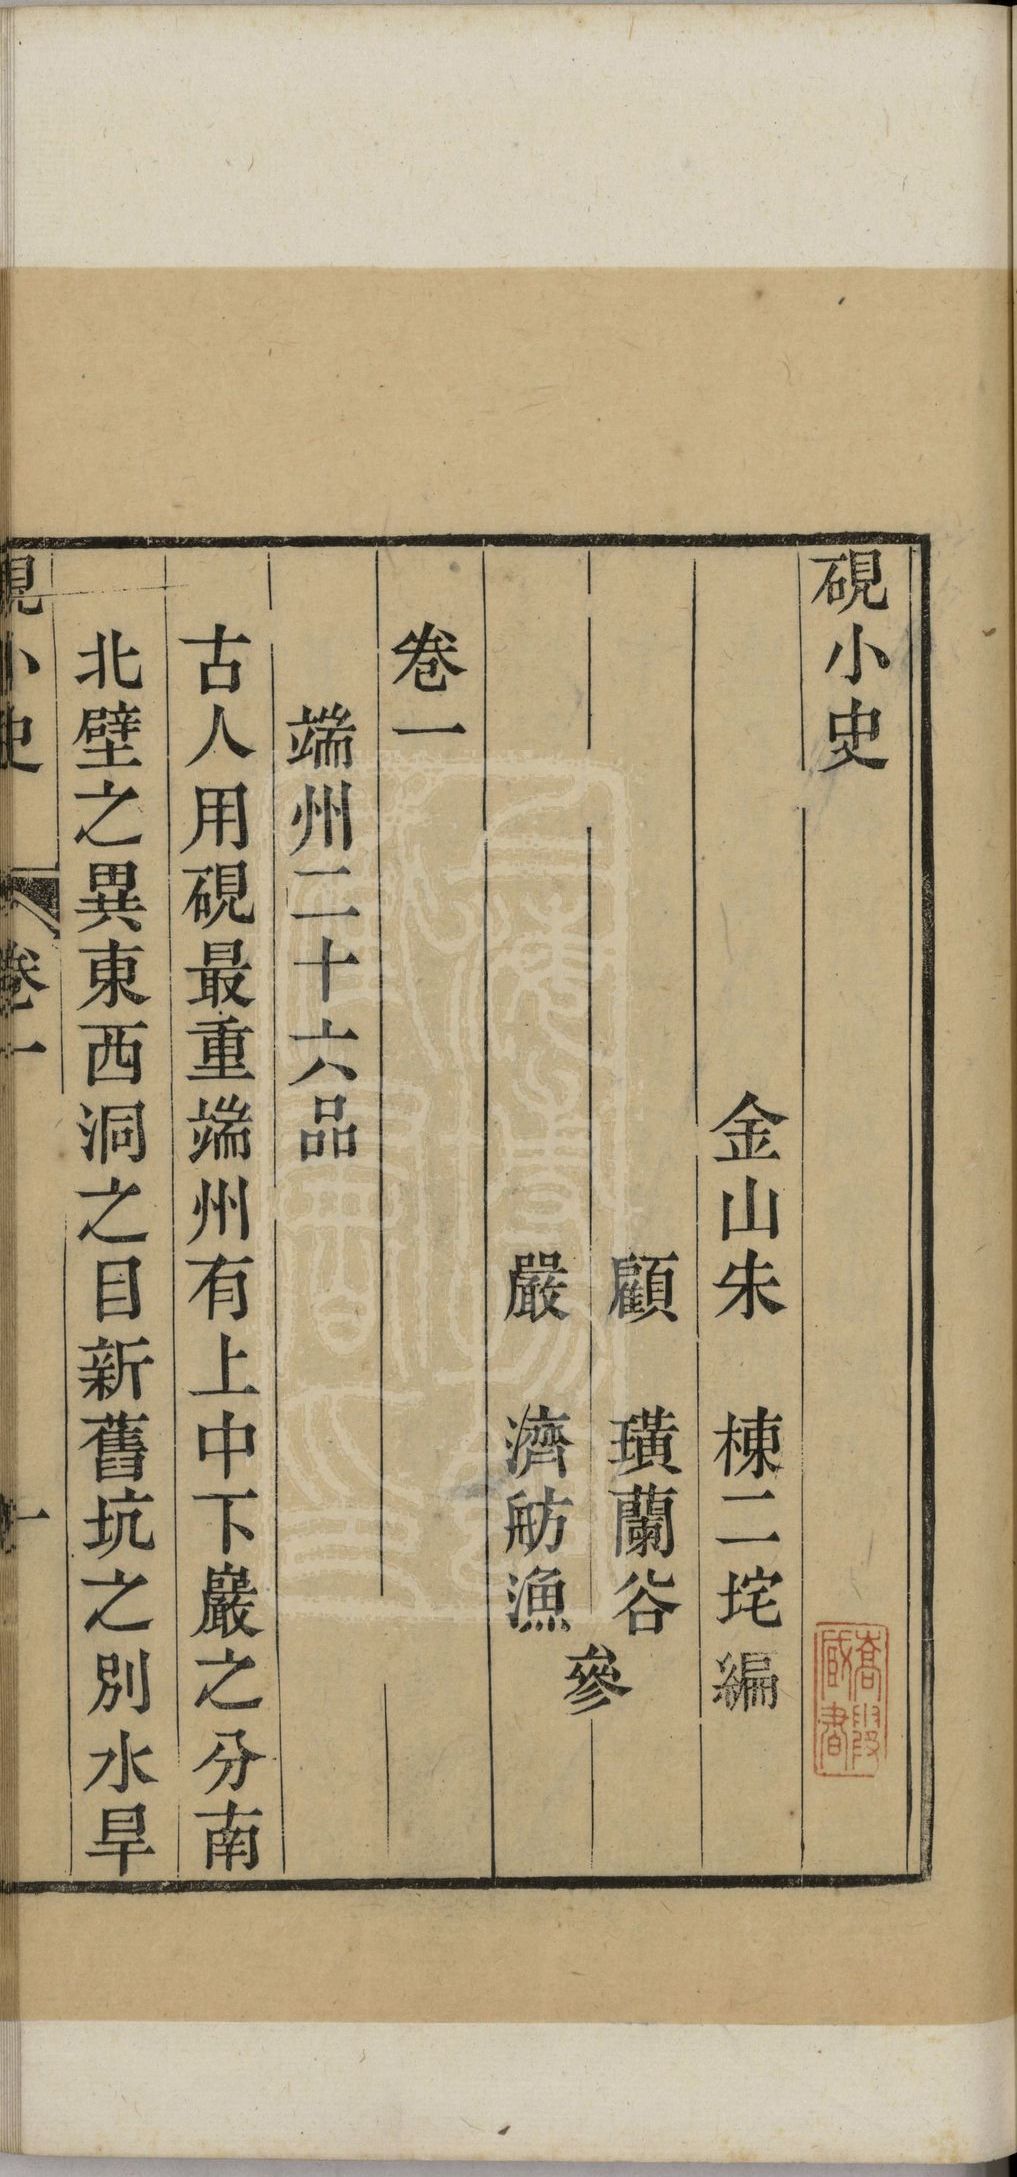 硯小史
金山朱　棟二垞編
顧　璜蘭谷
嚴　濟舫漁
參
卷一
端州二十六品
古人用硯最重端州有上中下巖之分南
北壁之異東西洞之目新舊坑之別水旱
硯小史
卷一
一